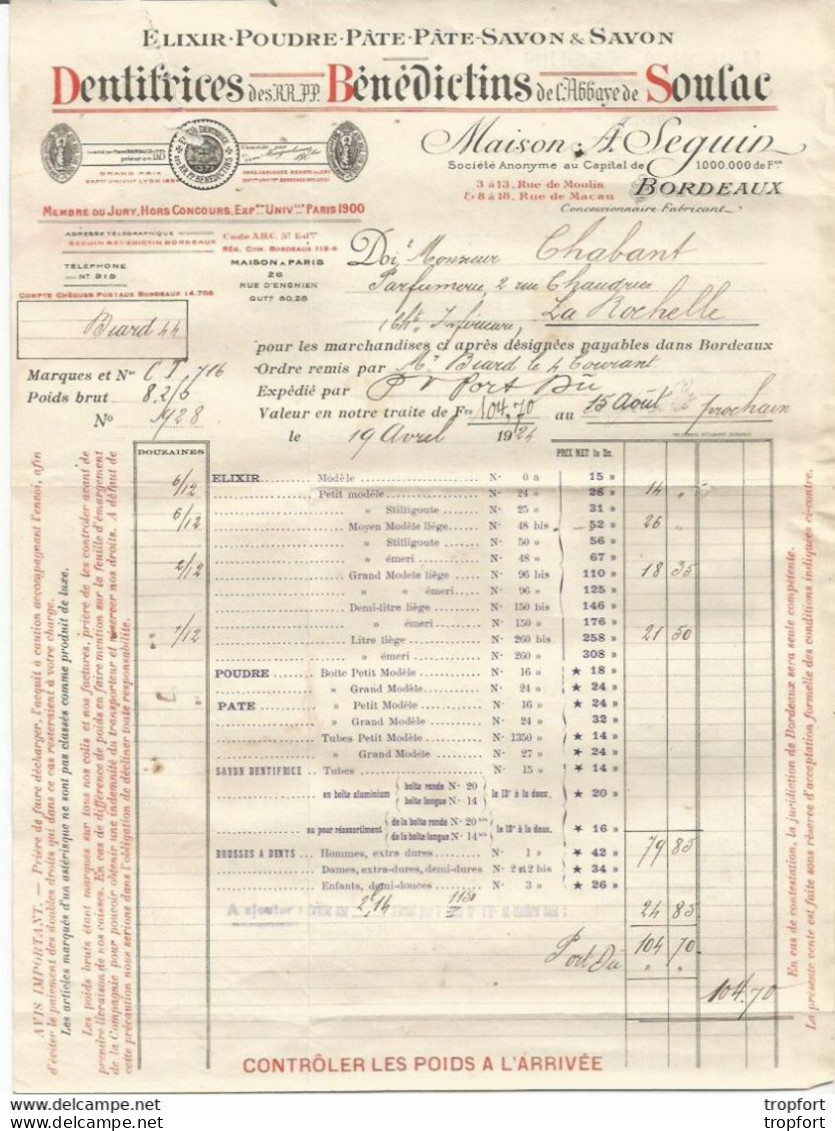 ELIXIR·POUDRE·PÂTE·PÂTE-SAVON & SAVON
Dentifrices des RR.PP. Bénédictins de l'Abbaye de Soulac
Maison A. Seguin
Société Anonyme au Capital de 1.000.000 de Frs
3 à 13, Rue de Moulis
& 8 à 18, Rue de Macau
BORDEAUX
Concessionnaire Fabricant
GRAND PRIX
MEMBRE DU JURY, HORS CONCOURS, EXPon UNIVlle PARIS 1900
ADRESSE TÉLÉGRAPHIQUE
SEGUIN BÉNÉDICTIN BORDEAUX
Code A.B.C. 5e Edon
REG. COM. BORDEAUX 119-B
TÉLÉPHONE
No 918
MAISON À PARIS
26
RUE D'ENGHIEN
GUTg 80,28
COMPTE CHÈQUES POSTAUX BORDEAUX 14.706
Doit Monsieur Chabant
Parfumerie, 2 rue Chaudrier
La Rochelle
Chte Inférieure,
Biard 44
pour les marchandises ci après désignées payables dans Bordeaux
Marques et Nos C I 716
Ordre remis par Mr Biard le 4 Courant
Poids brut 8.2/5
Expédié par PV Port Dû
No 1928
Valeur en notre traite de Frs 104.70 au 15 Août prochain
le 19 Avril 1924
DOUZAINES
PRIX NET la Dz.
6/12 ELIXIR Modèle N° 0 a 15 »
Petit modèle N° 24 » 26 » 14 »
6/12 » Stilligoute N° 25 » 31 »
Moyen Modèle liège N° 48 bis 52 » 26 »
» Stilligoute N° 50 » 56 »
» émeri N° 48 » 67 »
2/12 Grand Modèle liège N° 96 bis 110 » 18 35
» » émeri N° 96 » 125 »
Demi-litre liège N° 150 bis 146 »
» émeri N° 150 » 176 »
1/12 Litre liège N° 260 bis 258 » 21 50
» émeri N° 260 » 308 »
POUDRE Boite Petit Modèle N° 16 » ★ 18 »
» Grand Modèle N° 24 » ★ 24 »
PATE » Petit Modèle N° 16 » ★ 24 »
» Grand Modèle N° 24 » 32 »
Tubes Petit Modèle N° 1350 » ★ 14 »
» Grand Modèle N° 27 » ★ 24 »
SAVON DENTIFRICE Tubes N° 15 » ★ 14 »
en boîte aluminium boîte ronde N° 20 boîte longue N° 14 le 10e à la douz. ★ 20 »
ou pour réassortiment de la boîte ronde N° 20bis de la boîte longue N° 14bis le 10e à la douz. ★ 16 »
79 85
BROSSES A DENTS Hommes, extra dures N° 1 » ★ 42 »
Dames, extra-dures, demi-dures N° 2 et 2 bis ★ 34 »
Enfants, demi-douces N° 3 » ★ 26 »
A ajouter :
24 85
Port Dû 104 70
» »
104.70
CONTRÔLER LES POIDS A L'ARRIVÉE
AVIS IMPORTANT. — Prière de faire décharger, l'acquit à caution accompagnant l'envoi, afin
d'éviter le paiement des doubles droits qui dans ce cas resteraient à votre charge.
Les articles marqués d'un astérisque ne sont pas classés comme produit de luxe.
Les poids bruts étant marqués sur tous nos colis et nos factures, prière de les contrôler avant de
prendre livraison de nos caisses. En cas de différence de poids en faire mention sur la feuille d'émargement
de la Compagnie pour pouvoir obtenir une indemnité du transporteur et réserver nos droits. A défaut de
cette précaution nous serions dans l'obligation de décliner toute responsabilité.
En cas de contestation, la juridiction de Bordeaux sera seule compétente.
La présente vente est faite sous réserve d'acceptation formelle des conditions indiquées ci-contre.
www.delcampe.net
tropfort
tropfort